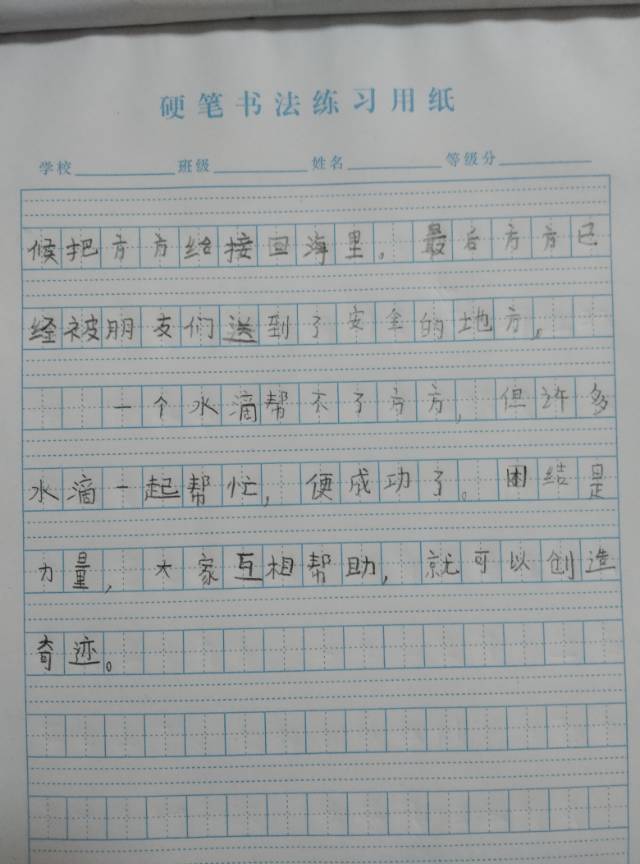 硬笔书法练习用纸
学校 班级 姓名 等级分
候把方方给接回海里。最后方方已
经被朋友们送到了安全的地方。
一个水滴帮不了方方,但许多
水滴一起帮忙,便成功了。团结是
力量,大家互相帮助,就可以创造
奇迹。